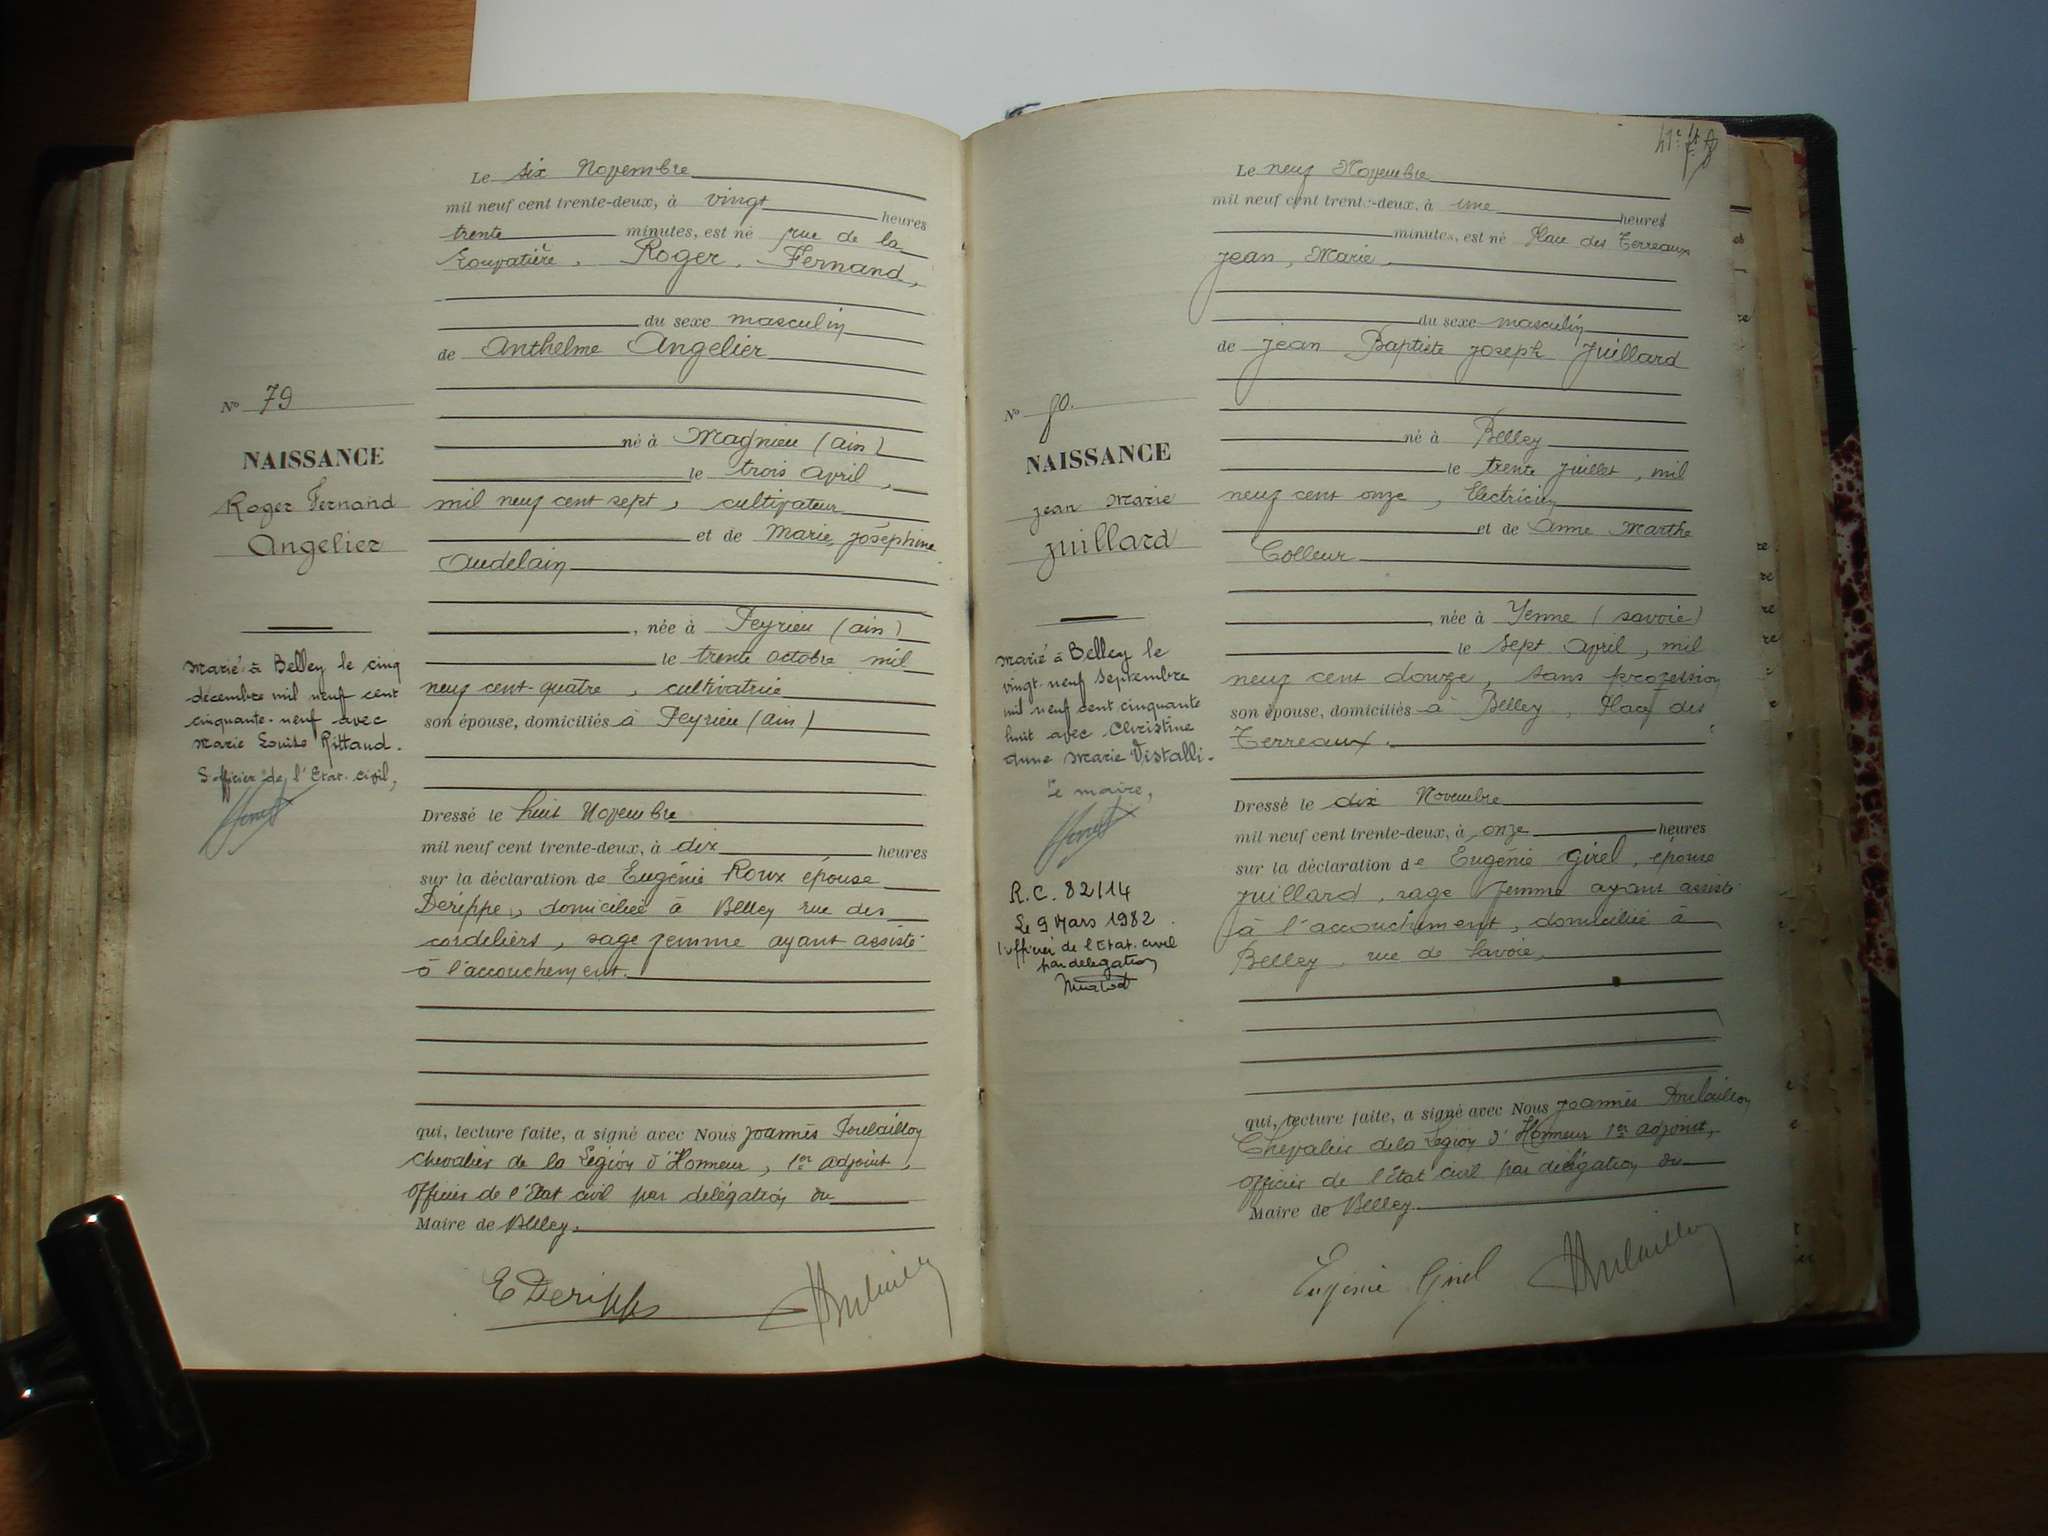 Le six Novembre
mil neuf cent trente-deux, à vingt heures
trente minutes, est né rue de la
Roger, Fernand,
du sexe masculin
de Anthelme Angelier
né à Magnieu (ain)
le trois avril,
mil neuf cent sept, cultivateur
et de Marie, joséphine
Audelain
, née à Peyrieu (ain)
le trente octobre mil
neuf cent-quatre, cultivatrice
son épouse, domiciliés à Peyrieu (ain)
Dressé le huit Novembre
mil neuf cent trente-deux, à dix heures
sur la déclaration de Eugénie Roux épouse
Dérippe, domiciliée à Belley rue des
cordeliers, sage femme ayant assisté
à l'accouchement.
qui, lecture faite, a signé avec Nous joannès
Chevalier de la Légion d'Honneur, 1er adjoint,
Officier de l'Etat civil par délégation du
Maire de Belley.
E Derippe
No 79
NAISSANCE
Roger Fernand
Angelier
Marié à Belley le cinq
décembre mil neuf cent
cinquante-neuf avec
Marie Louise Rittaud.
L'officier de l'Etat-civil,
Le neuf Novembre
mil neuf cent trente-deux, à une heures
minutes, est né Place des Terreaux
jean, Marie,
du sexe masculin
de jean Baptiste joseph juillard
né à Belley
le trente juillet, mil
neuf cent onze, Electricien
et de Anne Marthe
Colleur
, née à Yenne (savoie)
le sept avril, mil
neuf cent douze, sans profession
son épouse, domiciliés à Belley, Place des
Terreaux.
Dressé le dix Novembre
mil neuf cent trente-deux, à onze heures
sur la déclaration de Eugénie Girel, épouse
juillard, sage femme ayant assisté
à l'accouchement, domiciliée à
Belley, rue de Savoie,
qui, lecture faite, a signé avec Nous joannès
Chevalier de la Légion d'Honneur 1er adjoint,
Officier de l'Etat civil par délégation du
Maire de Belley.
Eugénie Girel
No 80.
NAISSANCE
jean Marie
juillard
Marié à Belley le
vingt-neuf septembre
mil neuf cent cinquante
huit avec Christine
Anne Marie Vistalli.
Le maire,
R.C. 82/14
Le 9 Mars 1982
l'officier de l'Etat-civil
par délégation